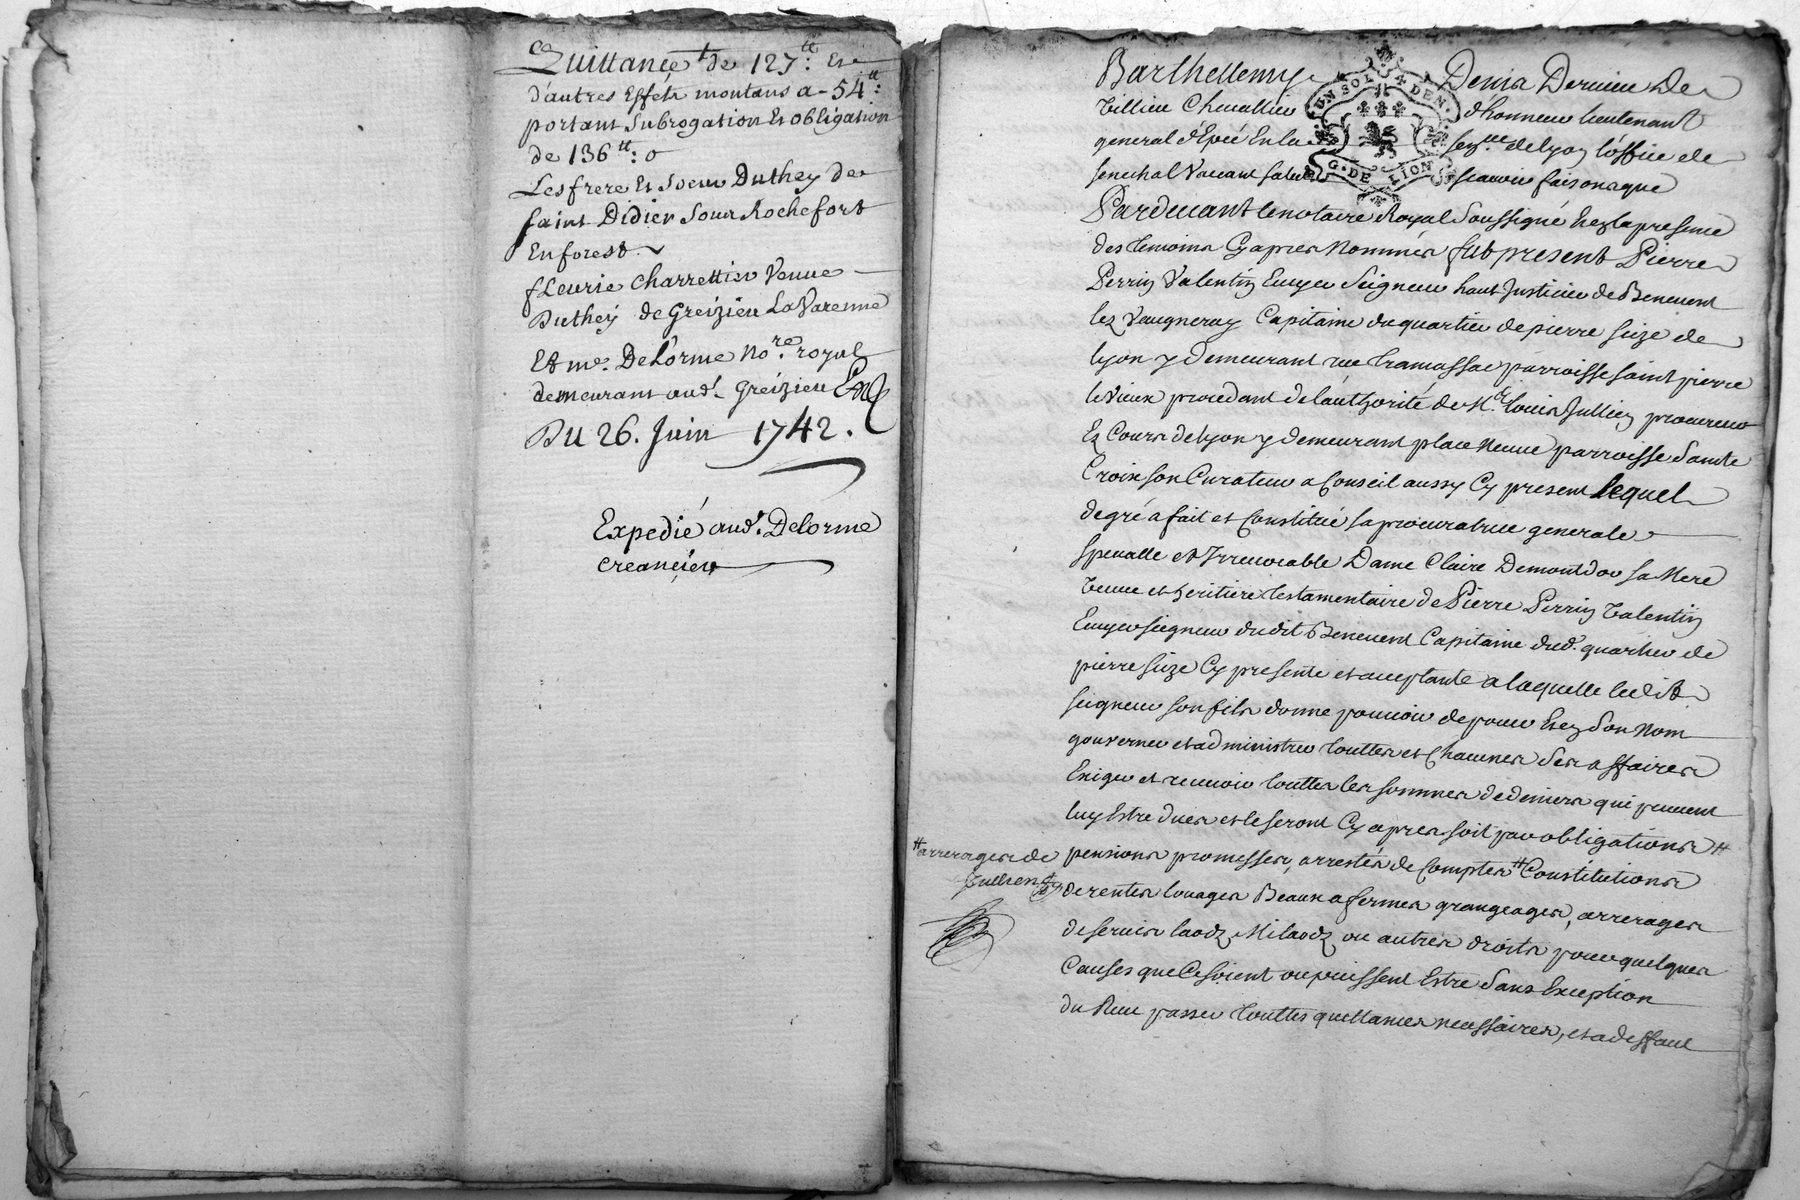 Quittance de 127tt: Et
d'autres Effets montans a - 54tt:
portant Subrogation Et obligation
de 136tt: o
Les frere Et Soeur Duthey de
saint Didier Sour Rochefort
En forest.
fleurie Charrettier Veuve
Duthey de Greizieu La Varenne
Et me. Delorme Nore. royal
demeurant aud. Greizieu
Du 26. Juin 1742.
Expedié aud. Delorme
creancier
Barthellemy Denis Dervieu De
Villieu Chevallier d'honneur lieutenant
UN SOL 4 DEN.
G. DE LION
general d'Epée En la senee. de lyon l'office de
senechal Vacant salut scavoir faisons que
Pardevant le notaire Royal Soussigné Et En la presence
des temoins Cy apres Nommés fut present Pierre
Perrin Valentin Ecuyer Seigneur haut Justicier de Benevent
lez Vaugneray Capitaine du quartier de pierre size de
lyon y demeurant rue tramassac parroisse saint pierre
le Vieux procedant de l'authorité de Me. louis Jullien procureur
Ez Cours de lyon y demeurant place Neuve parroisse Sainte
Croix son Curateur a Conseil aussy Cy present lequel
de gré a fait et Constitué sa procuratrice generale
specialle et Irrevocable Dame Claire Demontdor sa Mere
Veuve et heritiere testamentaire de Pierre Perrin Valentin
Ecuyer seigneur dudit Benevent Capitaine dud. quartier de
pierre size Cy presente et acceptante a laquelle ledit
seigneur son fils donne pouvoir de pour Et En Son Nom
gouverner et administrer touttes et Chacunes Ses affaires
Exiger et recevoir touttes les sommes de deniers qui peuvent
luy Estre dues et le seront Cy apres soit par obligations
pensions promesses, arrestés de Comptes # Constitutions
# arrerages de
Jullien
de rentes louages Beaux a fermes grangeages, arrerages
de servis laodz Milaodz ou autres droits pour quelques
Causes que Ce soient ou puissent Estre Sans Exception
du Reçu passer touttes quittances necessaires, et a deffaut